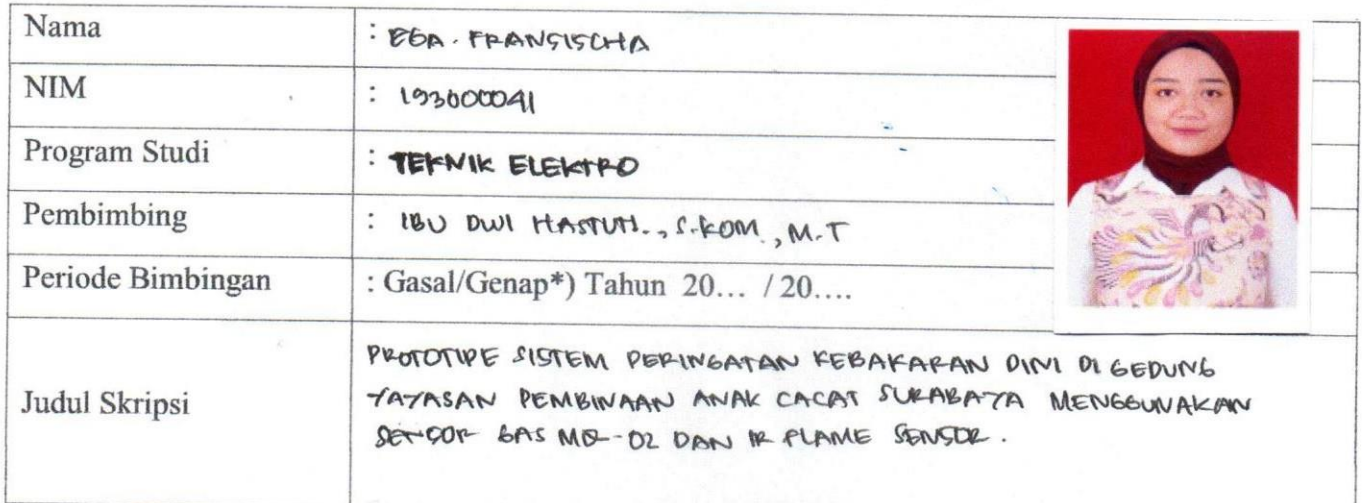 Nama : EGA. FRANSISCHA
NIM : 193600041
Program Studi : TEKNIK ELEKTRO
Pembimbing : IBU DWI HASTUTI., S.KOM., M.T
Periode Bimbingan : Gasal/Genap*) Tahun 20... / 20....
Judul Skripsi
PROTOTIPE SISTEM PERINGATAN KEBAKARAN DINI DI GEDUNG
YAYASAN PEMBINAAN ANAK CACAT SURABAYA MENGGUNAKAN
SENSOR GAS MQ-02 DAN IR FLAME SENSOR.